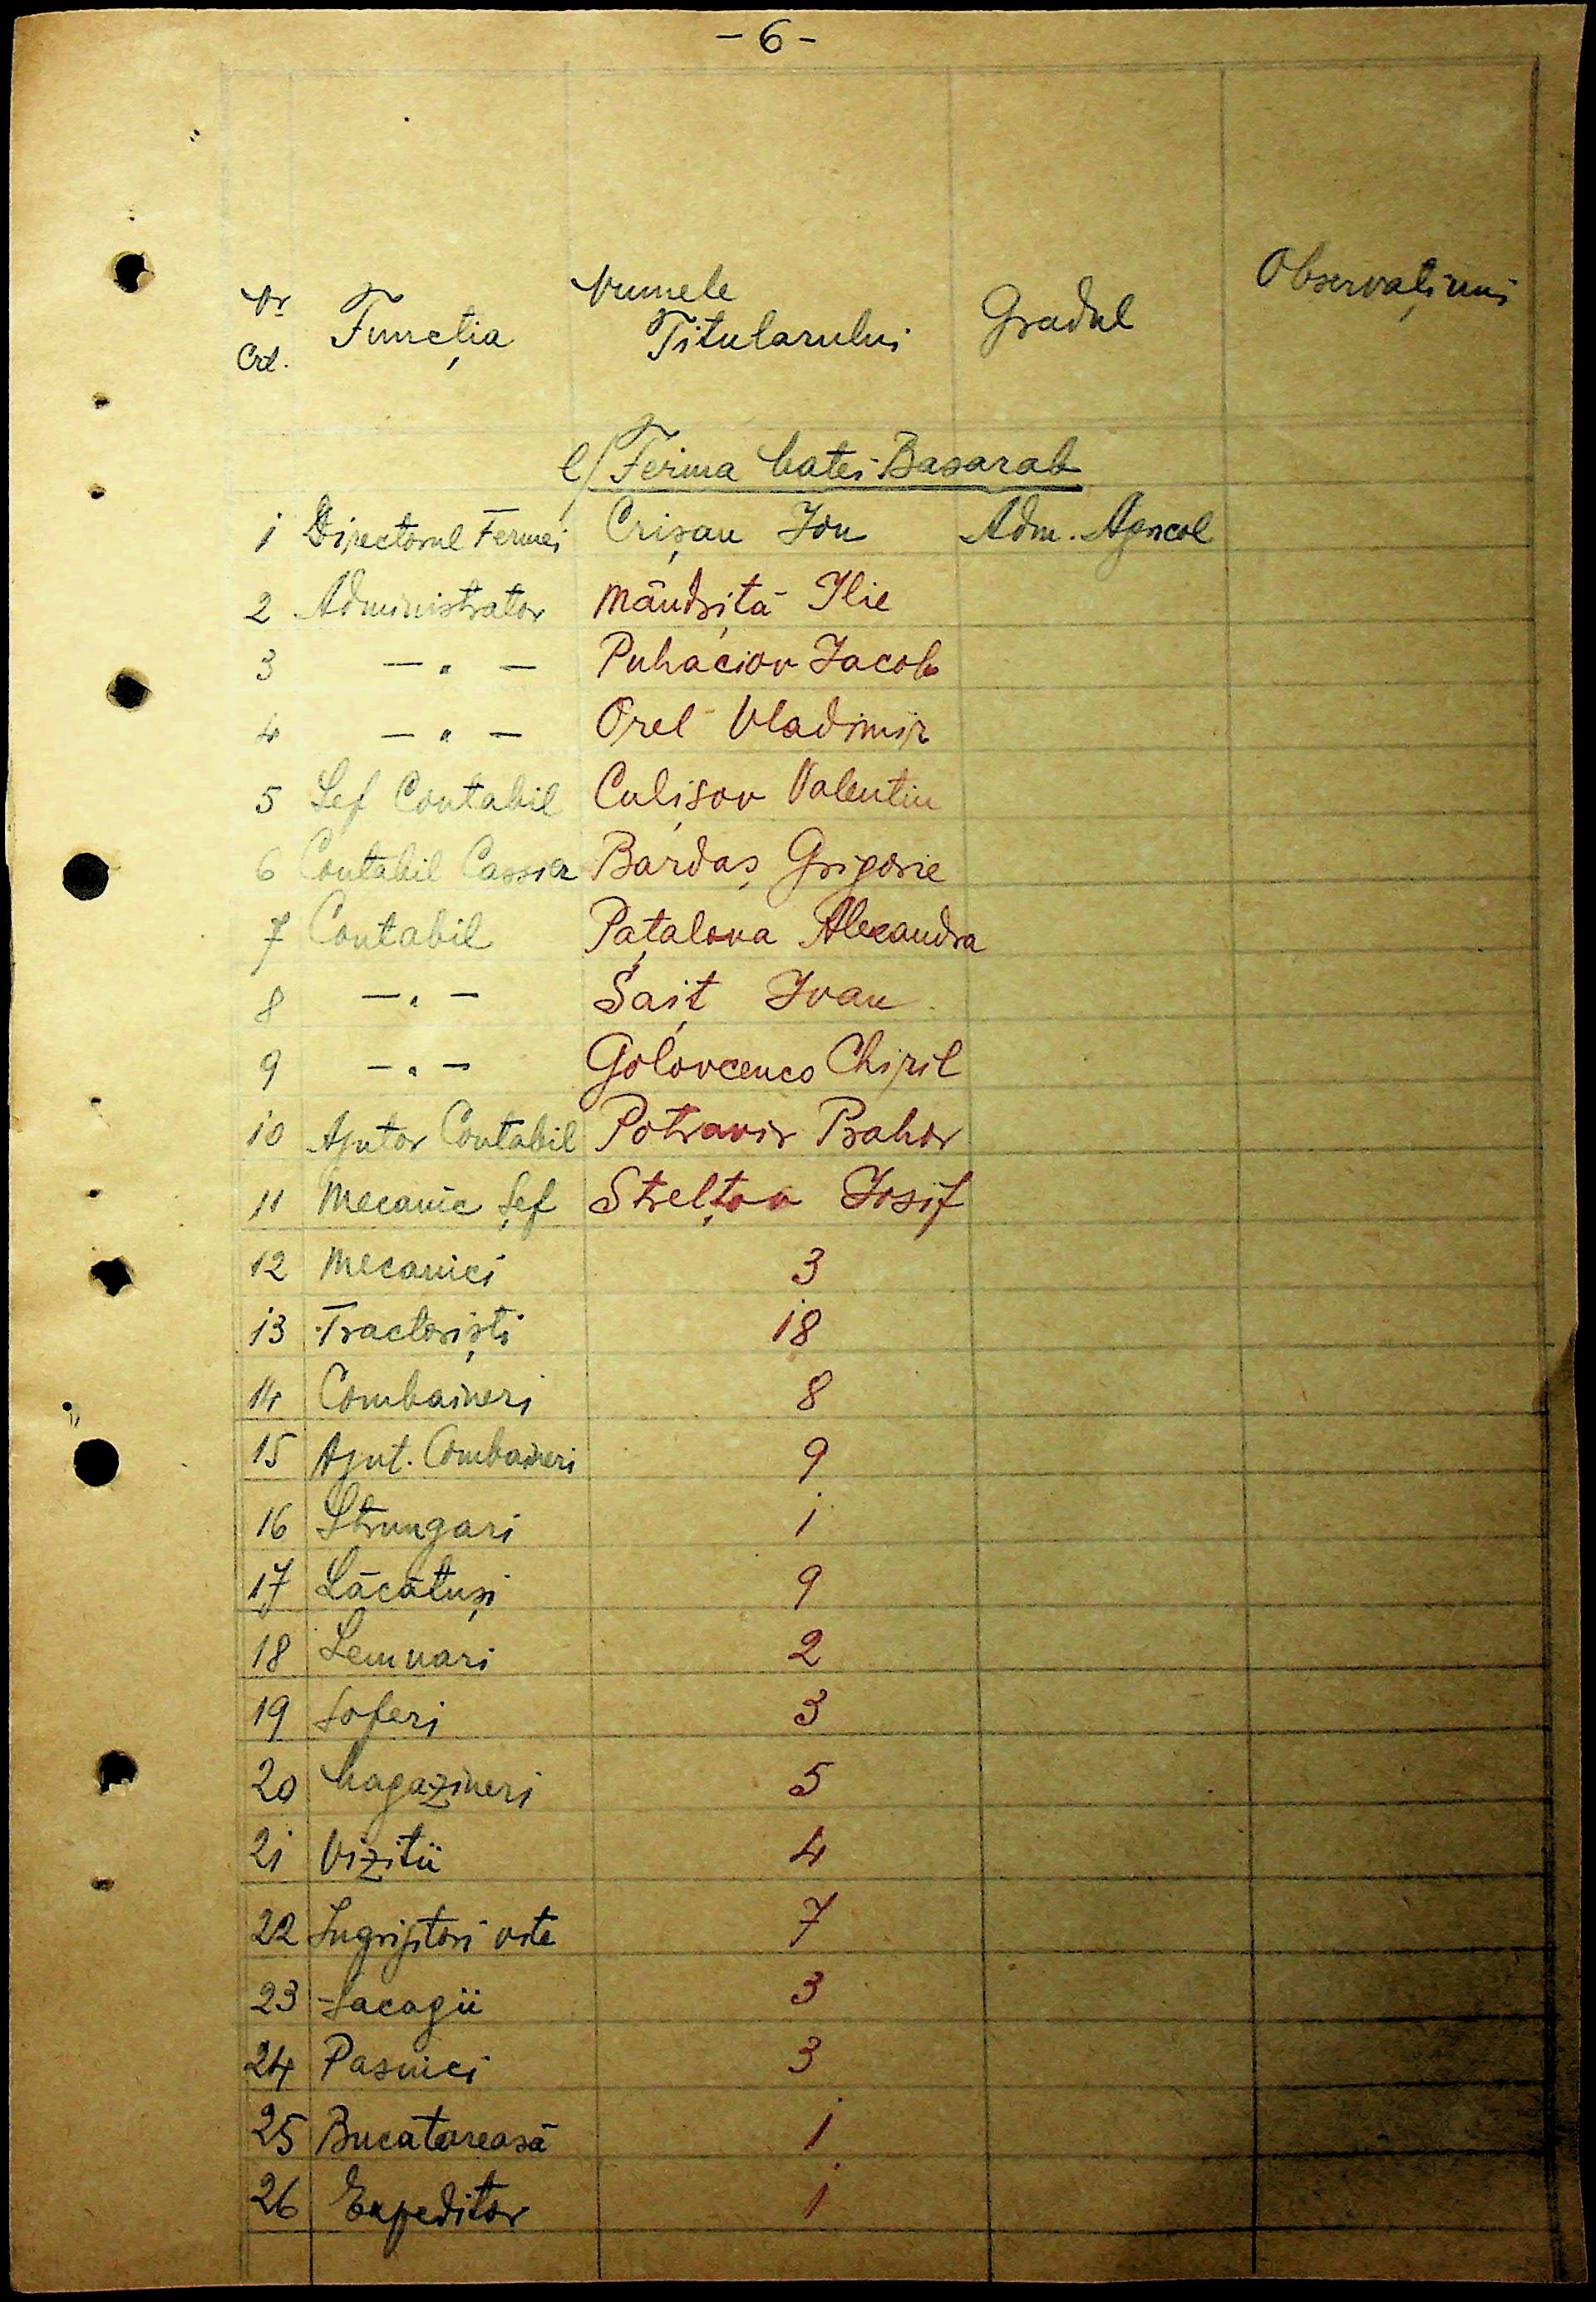 - 6 -
Nr Crt. Funcția Numele Titularului Gradul Observațiuni
e/ Ferma Matei Basarab
1 Directorul Fermei Crișan Ion Adm. Agricol
2 Administrator Mândrița Ilie
3 — " — Puhaciov Iacob
4 — " — Orel Vladimir
5 Șef Contabil Culișov Valentin
6 Contabil Cassier Bardaș Grigorie
7 Contabil Pațalova Alexandra
8 — " — Șaiț Ivan
9 — " — Golovcenco Chiril
10 Ajutor Contabil Potravir Prahor
11 Mecanic Șef Strelțov Iosif
12 Mecanici 3
13 Tractoriști 18
14 Combaineri 8
15 Ajut. Combaineri 9
16 Strungari 1
17 Lăcătuși 9
18 Lemnari 2
19 Șoferi 3
20 Magazineri 5
21 Vizitii 4
22 Ingrijitori vite 7
23 Sacagii 3
24 Pasnici 3
25 Bucatareasă 1
26 Expeditor 1